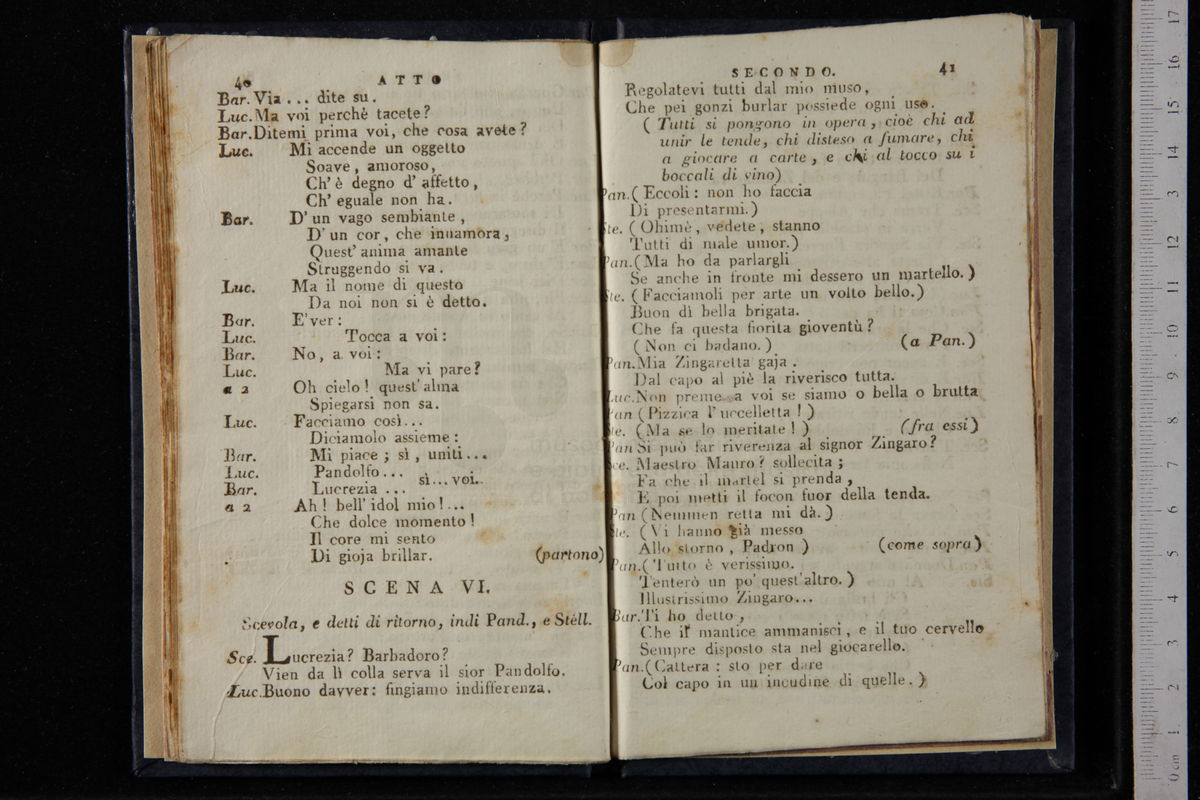 40 ATTO
Bar. Via ... dite su.
Luc. Ma voi perchè tacete?
Bar. Ditemi prima voi, che cosa avete?
Luc. Mi accende un oggetto
Soave, amoroso,
Ch' è degno d' affetto,
Ch' eguale non ha.
Bar. D' un vago sembiante,
D' un cor, che innamora,
Quest' anima amante
Struggendo si va.
Luc. Ma il nome di questo
Da noi non si è detto.
Bar. E' ver:
Luc. Tocca a voi:
Bar. No, a voi:
Luc. Ma vi pare?
a 2 Oh cielo! quest' alma
Spiegarsi non sa.
Luc. Facciamo così...
Diciamolo assieme:
Bar. Mi piace; sì, uniti...
Luc. Pandolfo...
sì... voi..
Bar. Lucrezia ...
a 2 Ah! bell' idol mio!...
Che dolce momento!
Il core mi sento
Di gioja brillar. (partono)
SCENA VI.
Scevola, e detti di ritorno, indi Pand., e Stell.
Sce. Lucrezia? Barbadoro?
Vien da lì colla serva il sior Pandolfo.
Luc. Buono davver: fingiamo indifferenza.
SECONDO. 41
Regolatevi tutti dal mio muso,
Che pei gonzi burlar possiede ogni uso.
( Tutti si pongono in opera, cioè chi ad
unir le tende, chi disteso a fumare, chi
a giocare a carte, e chi al tocco su i
boccali di vino)
Pan. ( Eccoli: non ho faccia
Di presentarmi.)
Ste. ( Ohimè, vedete, stanno
Tutti di male umor.)
Pan. (Ma ho da parlargli
Se anche in fronte mi dessero un martello.)
Ste. ( Facciamoli per arte un volto bello.)
Buon dì bella brigata.
Che fa questa fiorita gioventù?
( Non ci badano.) (a Pan.)
Pan. Mia Zingaretta gaja.
Dal capo al piè la riverisco tutta.
Luc. Non preme a voi se siamo o bella o brutta
Pan ( Pizzica l' uccelletta!)
Ste. ( Ma se lo meritate!) (fra essi)
Pan Si può far riverenza al signor Zingaro?
Sce. Maestro Mauro? sollecita;
Fa che il martel si prenda,
E poi metti il focon fuor della tenda.
Pan ( Nemmen retta mi dà.)
Ste. ( Vi hanno già messo
Allo storno, Padron ) (come sopra)
Pan. ( Tutto è verissimo.
Tenterò un po' quest' altro.)
Illustrissimo Zingaro...
Bar. Ti ho detto,
Che il mantice ammanisci, e il tuo cervello
Sempre disposto sta nel giocarello.
Pan. (Cattera: sto per dare
Col capo in un incudine di quelle.)
0 cm 1 2 3 4 5 6 7 8 9 10 11 12 13 14 15 16 17